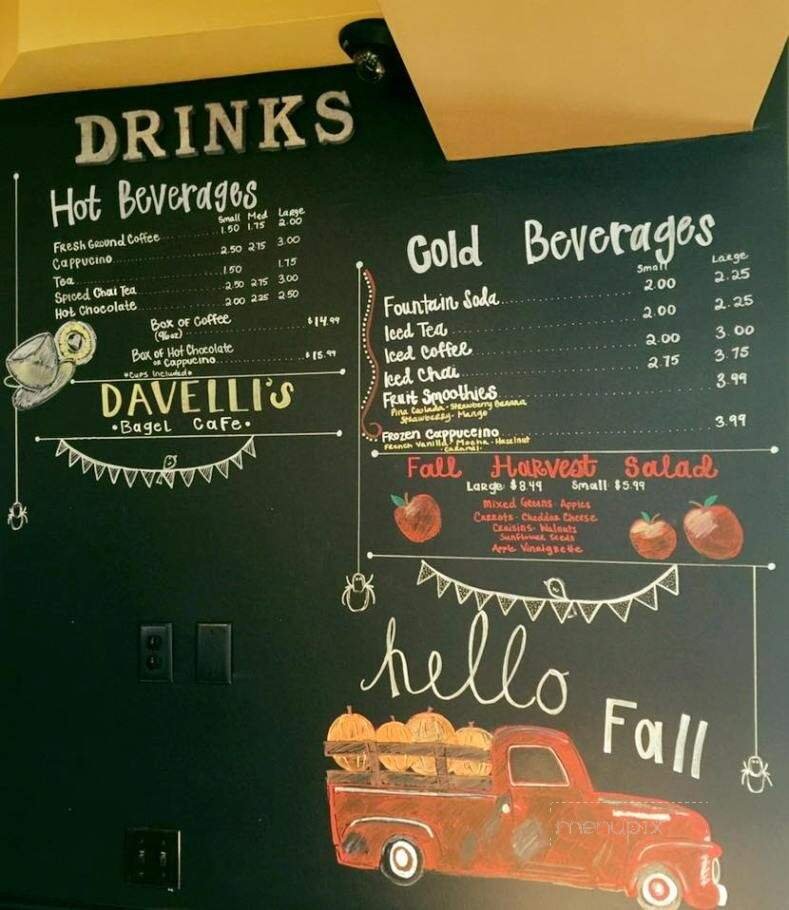 DRINKS
Hot Beverages
Small Med Large
Fresh Ground Coffee 1.50 1.75 2.00
Cappucino 2.50 2.75 3.00
Tea 1.50 1.75
Spiced Chai Tea 2.50 2.75 3.00
Hot Chocolate 2.00 2.25 2.50
Box of Coffee $14.99
(96oz)
Box of Hot Chocolate
or Cappucino $15.99
*Cups Included*
DAVELLI'S
•Bagel Cafe•
Cold Beverages
Small Large
Fountain Soda 2.00 2.25
Iced Tea 2.00 2.25
Iced Coffee 2.00 3.00
Iced Chai 2.75 3.75
Fruit Smoothies 3.99
Pina Coulada - Strawberry Banana
Strawberry - Mango
Frozen Cappuccino 3.99
French Vanilla - Mocha - Hazelnut
Caramel
Fall Harvest Salad
Large $8.49 Small $5.99
Mixed Greens - Apples
Carrots - Cheddar Cheese
Craisins - Walnuts
Sunflower Seeds
Apple Vinaigrette
hello
Fall
menupix